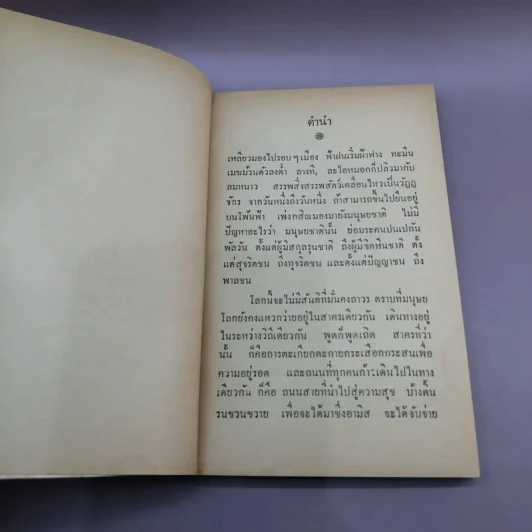 คำนำ
เหลียวมองไปรอบๆเมือง ฟ้าฝนเริ่มฝ้าฟาง ทะมึน
เมฆม้วนตัวลงต่ำ ลางที, ละไอหมอกก็ปลิวมากับ
ลมหนาว สรรพสิ่งสรรพสัตว์เคลื่อนไหวเป็นวัฏฏ
จักร จากวันหนึ่งถึงวันหนึ่ง ถ้าสามารถขึ้นไปยืนอยู่
บนโพ้นฟ้า เพ่งกสิณมองมายังมนุษยชาติ ไม่มี
ปัญหาอะไรว่า มนุษยชาตินั้น ย่อมระคนปนเปกัน
พัลวัน ตั้งแต่ผู้มีสกุลรุนชาติ ถึงผู้มีจิตหินชาติ ตั้ง
แต่สุจริตชน ถึงทุจริตชน และตั้งแต่ปัญญาชน ถึง
พาลชน
โลกนี้จะไม่มีสันติที่มั่นคงถาวร ตราบที่มนุษย
โลกยังคงแหวกว่ายอยู่ในสาครเดียวกัน เดินทางอยู่
ในระหว่างวิถีเดียวกัน พูดก็พูดเถิด สาครที่ว่า
นั้น ก็คือการตะเกียกตะกายกระเสือกกระสนเพื่อ
ความอยู่รอด และถนนที่ทุกคนก้าวเดินไปในทาง
เดียวกัน ก็คือ ถนนสายที่นำไปสู่ความสุข บ้างดิ้น
รนขวนขวาย เพื่อจะได้มาซึ่งอามิส จะได้จับจ่าย